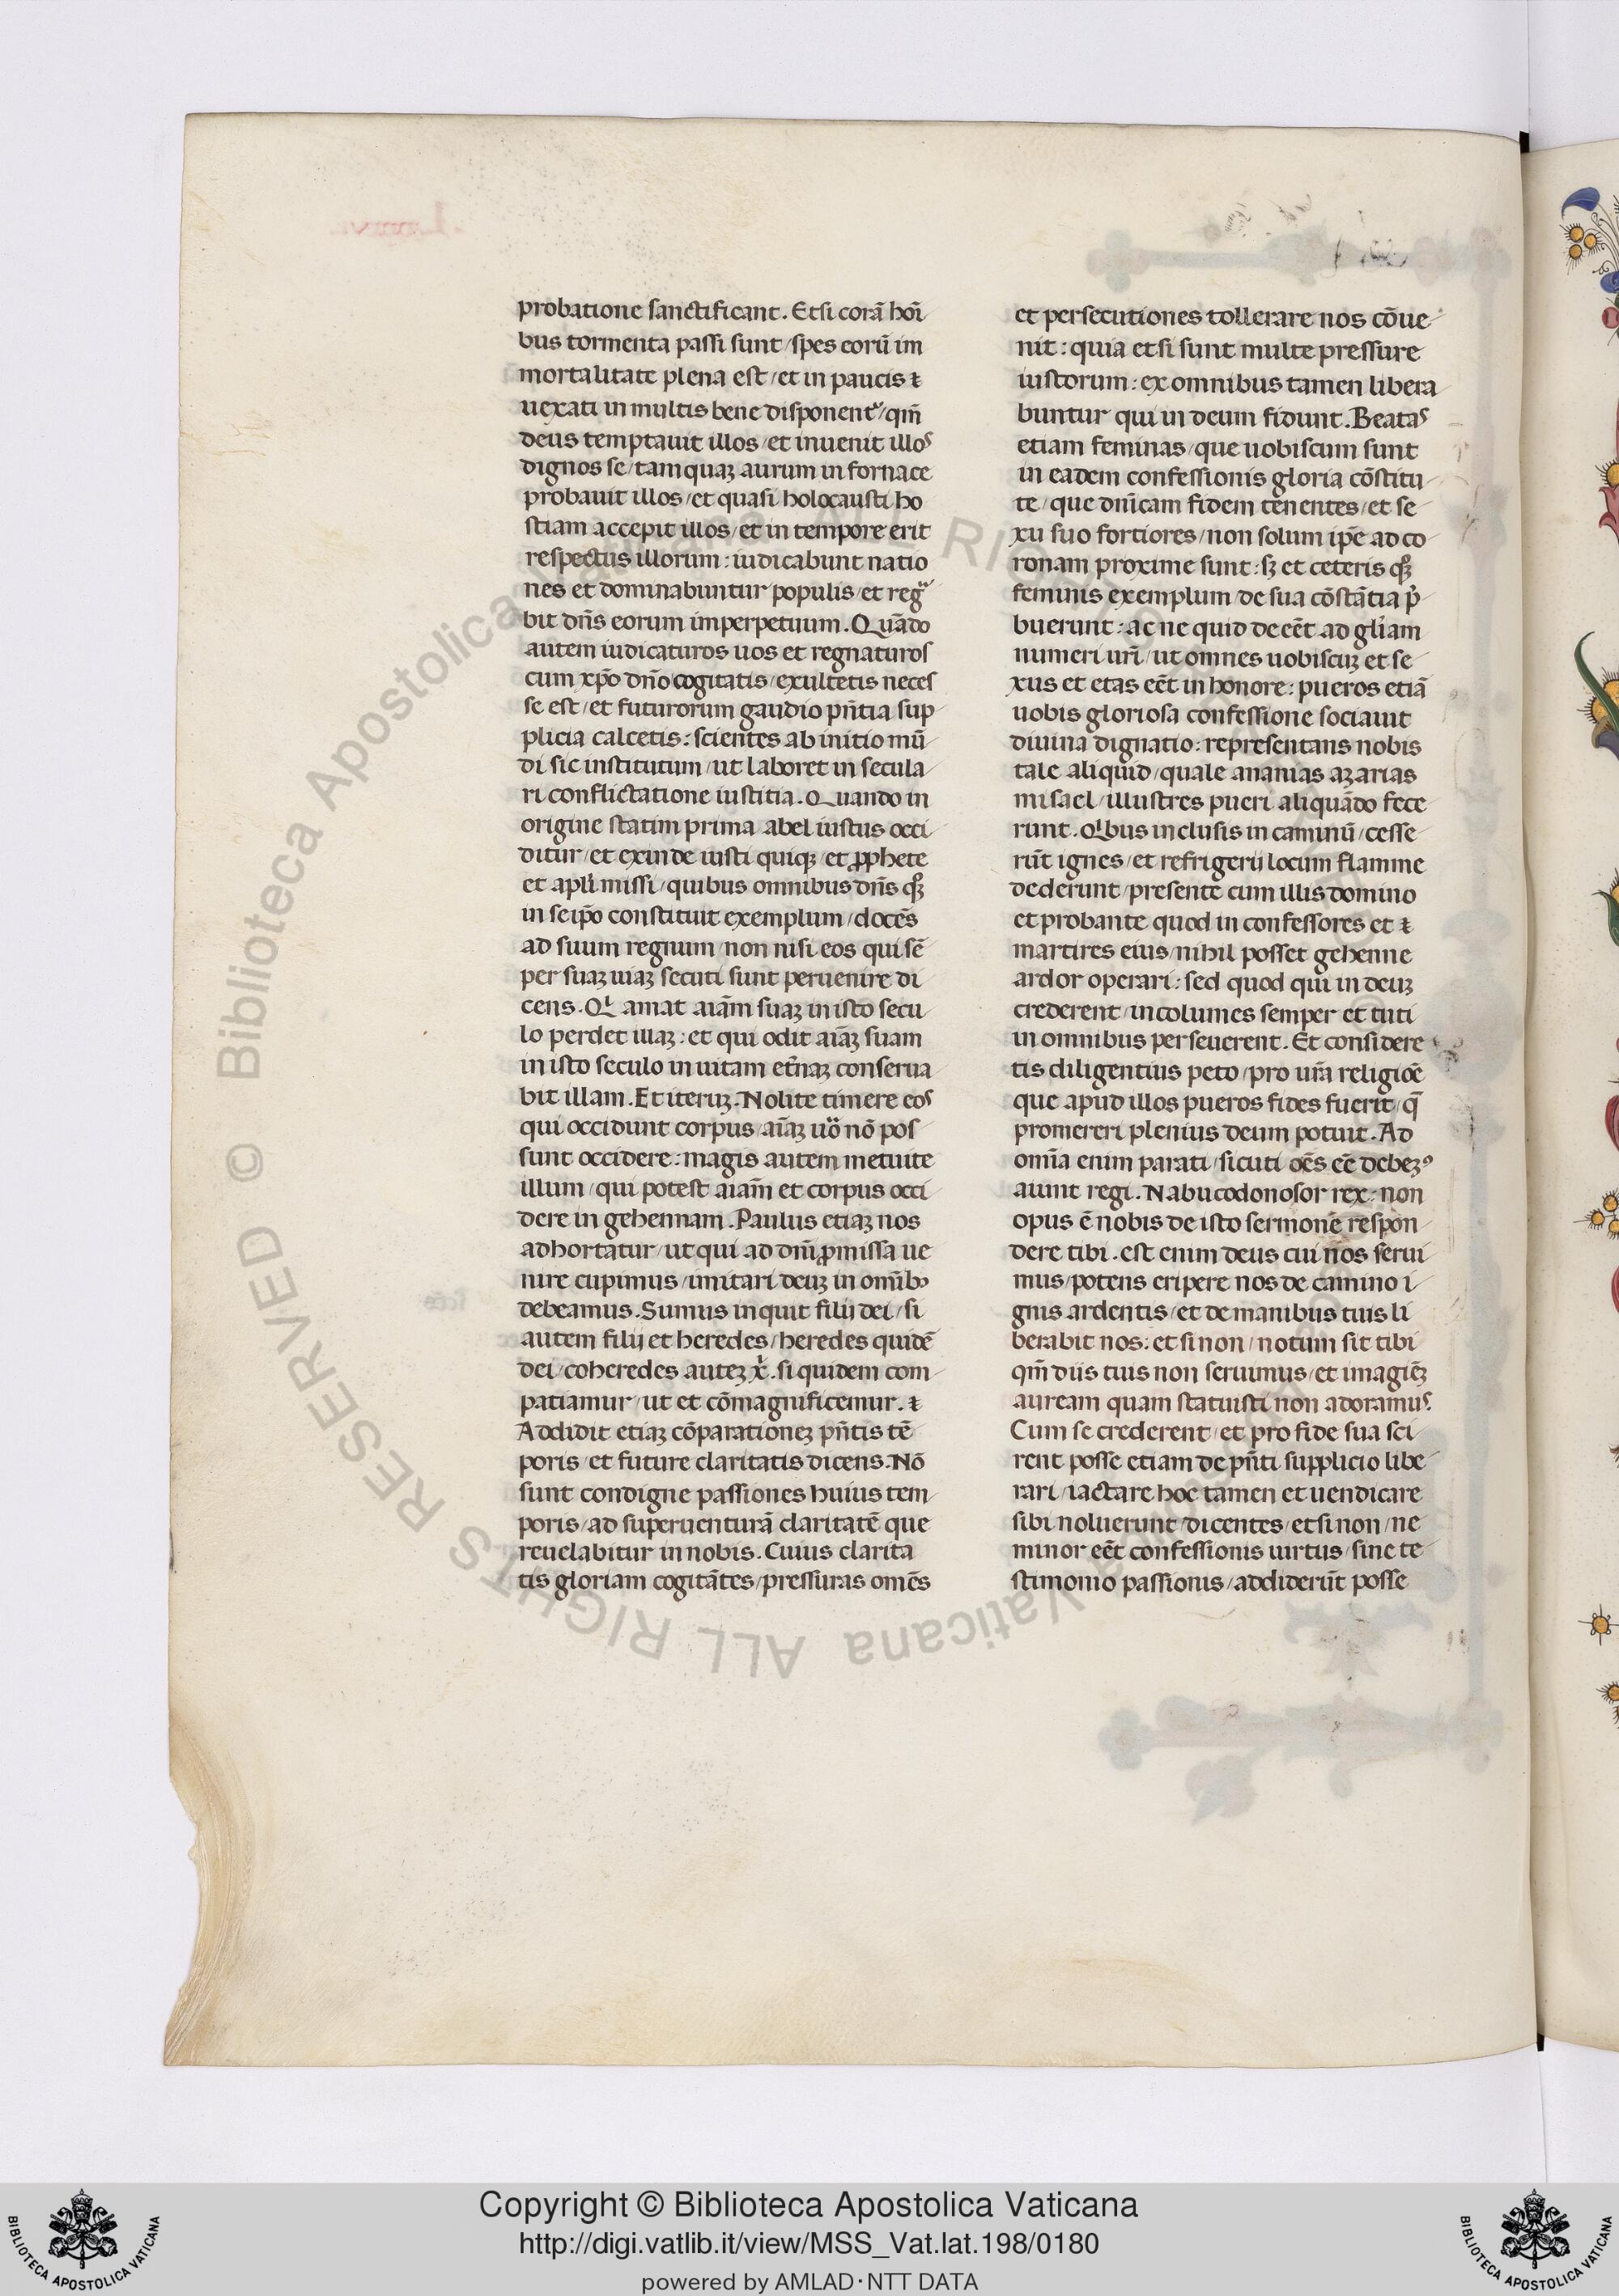 probatione sanctificant. Etsi corā hoī
bus tormenta passi sunt / spes eorū im
mortalitate plena est / et in paucis ⁊
uexati in multis bene disponentᷣ / qm̄
deus temptauit illos / et inuenit illos
dignos se / tamquaꝫ aurum in fornace
probauit illos / et quasi holocausti ho
stiam accepit illos / et in tempore erit
respectus illorum : iudicabunt natio
nes et dominabuntur populis / et regᷓ
bit dn̄s eorum imperpetuum. Quādo
autem iudicaturos uos et regnaturos
cum xp̄o dn̄o cogitatis / exultetis neces
se est / et futurorum gaudio pn̄tia sup
plicia calcetis : scientes ab initio mū
di sic institutum / ut laboret in secula
ri conflictatione iustitia. Quando in
origine statim prima abel iustus occi
ditur / et exinde iusti quiqꝫ et ꝓphete
et apl̄i missi / quibus omnibus dn̄s qꝫ
in seip̄o constituit exemplum / docēs
ad suum regnum / non nisi eos qui sē
per suaꝫ uiaꝫ secuti sunt peruenire di
cens. Qͥ amat aīam suaꝫ in isto secu
lo perdet illaꝫ : et qui odit aīaꝫ suam
in isto seculo in uitam et̄naꝫ conserua
bit illam. Et iteruꝫ. Nolite timere eos
qui occidunt corpus / aīaꝫ uͦo nō pos
sunt occidere : magis autem metuite
illum / qui potest aīam et corpus occi
dere in gehennam. Paulus etiaꝫ nos
adhortatur / ut qui ad dn̄i ꝓmissa ue
nire cupimus / imitari deuꝫ in omībꝰ
debeamus. Sumus inquit filij dei / si
autem filij et heredes / heredes quidē
dei / coheredes auteꝫ xͥ. si quidem com
patiamur / ut et cōmagnificemur. ⁊
Addidit etiaꝫ cōparationeꝫ pn̄tis tē
poris / et future claritatis dicens. Nō
sunt condigne passiones huius tem
poris / ad superuenturā claritatē que
reuelabitur in nobis. Cuius clarita
tis gloriam cogitātes / pressuras omēs
et persecutiones tollerare nos cōue
nit : quia etsi sunt multe pressure
iustorum : ex omnibus tamen libera
buntur qui in deum fidunt. Beatas
etiam feminas / que uobiscum sunt
in eadem confessionis gloria cōstitu
te / que dn̄icam fidem tenentes / et se
xu suo fortiores / non solum ip̄e ad co
ronam proxime sunt : sꝫ et ceteris qꝫ
feminis exemplum / de sua cōstātia p̄
buerunt : ac ne quid deeēt ad gl̄iam
numeri ur̄i / ut omnes uobiscuꝫ et se
xus et etas eēt in honore : pueros etiā
uobis gloriosa confessione sociauit
diuina dignatio : representans nobis
tale aliquid / quale ananias azarias
misael / illustres pueri aliquādo fece
runt. Qͥbus inclusis in caminū / cesse
rūt ignes / et refrigerij locum flamme
dederunt / presente cum illis domino
et probante quod in confessores et ⁊
martires eius / nihil posset gehenne
ardor operari : sed quod qui in deuꝫ
crederent / incolumes semper et tuti
in omnibus perseuerent. Et considere
tis diligentius peto / pro ur̄a religiōe
que apud illos pueros fides fuerit / q̄
promereri plenius deum potuit. Ad
omīa enim parati / sicuti oēs eē debeꝫꝰ
aiunt regi. Nabucodonosor rex : non
opus ē nobis de isto sermone respon
dere tibi. est enim deus cui nos serui
mus / potens eripere nos de camino i
gnis ardentis / et de manibus tuis li
berabit nos : et si non / notum sit tibi
qm̄ diis tuis non seruimus / et imagiēꝫ
auream quam statuisti non adoramus.
Cum se crederent / et pro fide sua sci
rent posse etiam de pn̄ti supplicio libe
rari / iactare hoc tamen et uendicare
sibi noluerunt / dicentes / et si non / ne
minor eēt confessionis uirtus / sine te
stimonio passionis / addiderūt posse
© Biblioteca Apostolica Vaticana ALL RIGHTS RESERVED
Copyright © Biblioteca Apostolica Vaticana
http://digi.vatlib.it/view/MSS_Vat.lat.198/0180
powered by AMLAD·NTT DATA
BIBLIOTECA APOSTOLICA VATICANA
BIBLIOTECA APOSTOLICA VATICANA